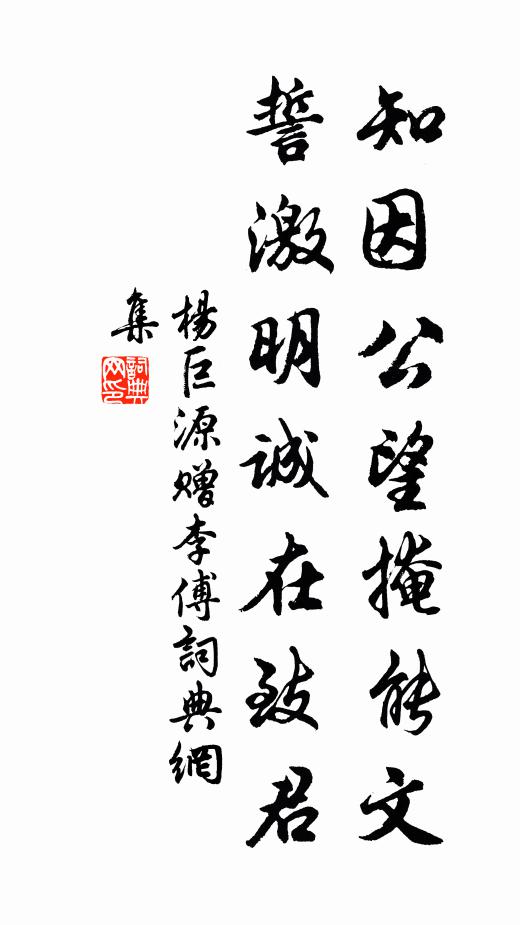 知因公望掩能文
誓激明誠在致君
楊巨源贈李傅詞典網
集
詞典
网印